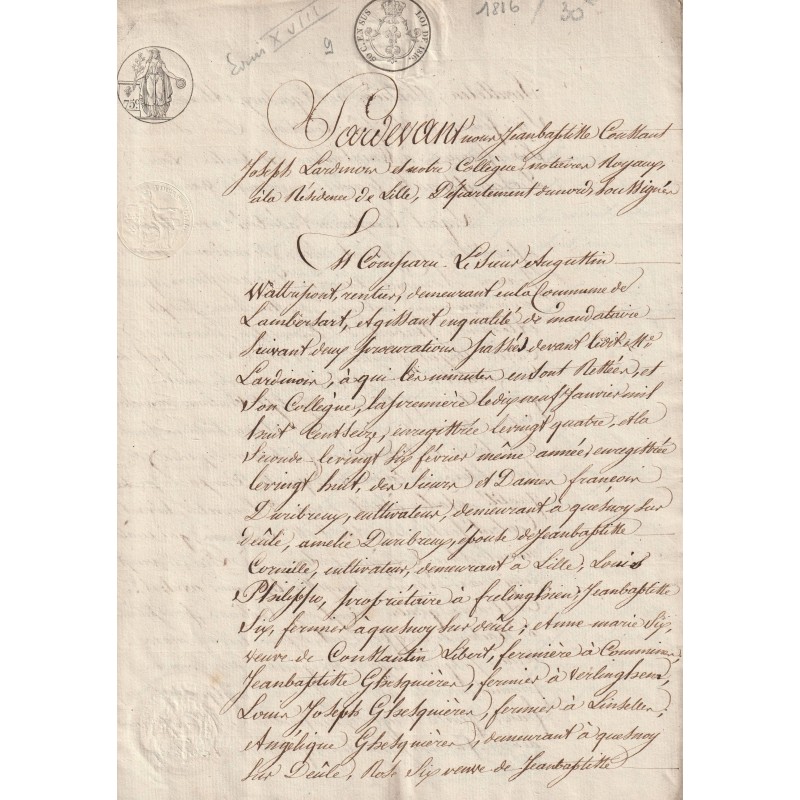 1816 / 30
Louis XVIII
9
50 C. EN SUS
LOI DE 1816
75c.
Pardevant nous Jeanbaptiste Constant
Joseph Lardinois et notre Collègue notaires Royaux,
à la Résidence de Lille, Département du nord, Soussignés
Est Comparu Le Sieur Augustin
Wattrepont, rentier, demeurant en la Commune de
Lambersart, agissant en qualité de mandataire
Suivant deux procurations passées devant ledit Me
Lardinois, à qui les minutes en sont Restées, et
Son Collègue, la première le dix neuf Janvier mil
huit Cent Seize, enregistrée le vingt quatre, et la
Seconde le vingt Six février même année, enregistrée
le vingt huit, des Sieurs et Dames françois
Duribreux, cultivateur, demeurant à quesnoy sur
deûle, amélie Duribreux, épouse de Jeanbaptiste
Cornille, cultivateur, demeurant à Lille, Louis
Philippo, propriétaire à frelinghien, Jeanbaptiste
Six, fermier à quesnoy sur deûle; et anne marie Six,
veuve de Constantin Libert, fermière à Commines,
Jeanbaptiste Ghesquière, fermier à Verlinghem,
Louis Joseph Ghesquière, fermier à Linselles,
Angélique Ghesquière, demeurant à quesnoy
sur Deûle, Rose Six veuve de Jeanbaptiste